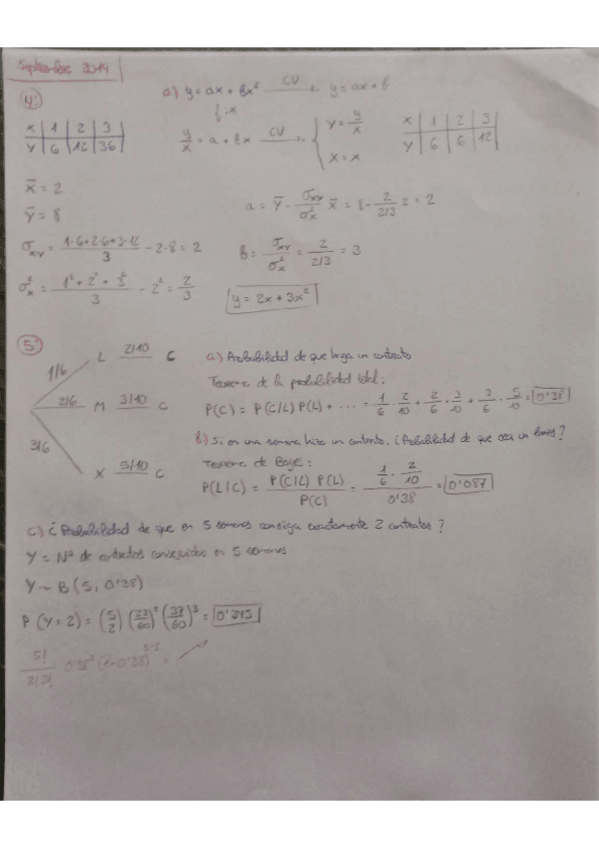 Septiembre 2019
4.
a) y = ax + bx² CV y = ax + b
↓ :x
x | 1 | 2 | 3
y | 6 | 12 | 36
y/x = a + bx CV { Y = y/x
X = x
X | 1 | 2 | 3
Y | 6 | 6 | 12
x̄ = 2
ȳ = 8
a = ȳ - σxy/σ²x x̄ = 8 - 2/(2/3) 2 = 2
σxy = (1·6+2·6+3·12)/3 - 2·8 = 2
b = σxy/σ²x = 2/(2/3) = 3
σ²x = (1² + 2² + 3²)/3 - 2² = 2/3
y = 2x + 3x²
5.
1/6 L 2/10 C
2/6 M 3/10 C
3/6 X 5/10 C
a) Probabilidad de que haga un contrato
Teorema de la probabilidad total:
P(C) = P(C/L) P(L) + ... = 1/6 · 2/10 + 2/6 · 3/10 + 3/6 · 5/10 = 0'38
b) Si en una semana hizo un contrato, ¿Probabilidad de que sea un lunes?
Teorema de Baye:
P(L|C) = P(C|L) P(L) / P(C) = (1/6 · 2/10) / 0'38 = 0'087
c) ¿Probabilidad de que en 5 semanas consiga exactamente 2 contratos?
Y = Nº de contratos conseguidos en 5 semanas
Y ~ B(5, 0'38)
P(Y=2) = (5 2) (23/60)² (37/60)³ = 0'345
5!/(2!3!) 0'38² (1-0'38)⁵⁻² =